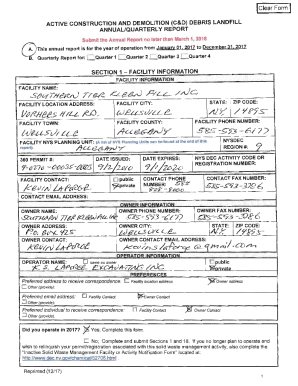 Clear Form
ACTIVE CONSTRUCTION AND DEMOLITION (C&D) DEBRIS LANDFILL
ANNUAL/QUARTERLY REPORT
Submit the Annual Report no later than March 1, 2018
A. This annual report is for the year of operation from January 01, 2017 to December 31, 2017
B. Quarterly Report for: Quarter 1 Quarter 2 Quarter 3 Quarter 4
SECTION 1 – FACILITY INFORMATION
FACILITY INFORMATION
FACILITY NAME:
SOUTHERN TIER KLEEN FILL INC.
FACILITY LOCATION ADDRESS: FACILITY CITY: STATE: ZIP CODE:
VORHEES HILL RD. WELLSVILLE N.Y. 14895
FACILITY TOWN: FACILITY COUNTY: FACILITY PHONE NUMBER:
WELLSVILLE ALLEGANY 585-593-6177
FACILITY NYS PLANNING UNIT: (A list of NYS Planning Units can be found at the end of this report) NYSDEC REGION #: 9
ALLEGANY
360 PERMIT #: DATE ISSUED: DATE EXPIRES: NYS DEC ACTIVITY CODE OR REGISTRATION NUMBER:
FACILITY CONTACT: public private CONTACT PHONE NUMBER: CONTACT FAX NUMBER:
KEVIN LAFORGE 585-593-3786
CONTACT EMAIL ADDRESS:
OWNER INFORMATION
OWNER NAME: OWNER PHONE NUMBER: OWNER FAX NUMBER:
585-593-6177 585-593-3786
OWNER ADDRESS: OWNER CITY: STATE: ZIP CODE:
WELLSVILLE N.Y. 14895
OWNER CONTACT: OWNER CONTACT EMAIL ADDRESS:
KEVIN LAFORGE
OPERATOR INFORMATION
OPERATOR NAME: same as owner public private
K.S. LAFORGE EXCAVATING INC
PREFERENCES
Preferred address to receive correspondence: Facility location address Owner address
Other (provide):
Preferred email address: Facility Contact Owner Contact
Other (provide):
Preferred individual to receive correspondence: Facility Contact Owner Contact
Other (provide):
Did you operate in 2017? Yes; Complete this form.
No; Complete and submit Sections 1 and 18. If you no longer plan to operate and wish to relinquish your permit/registration associated with this solid waste management activity, also complete the "Inactive Solid Waste Management Facility or Activity Notification Form" located at:
http://www.dec.ny.gov/chemical/52706.html
Reprinted (12/17)